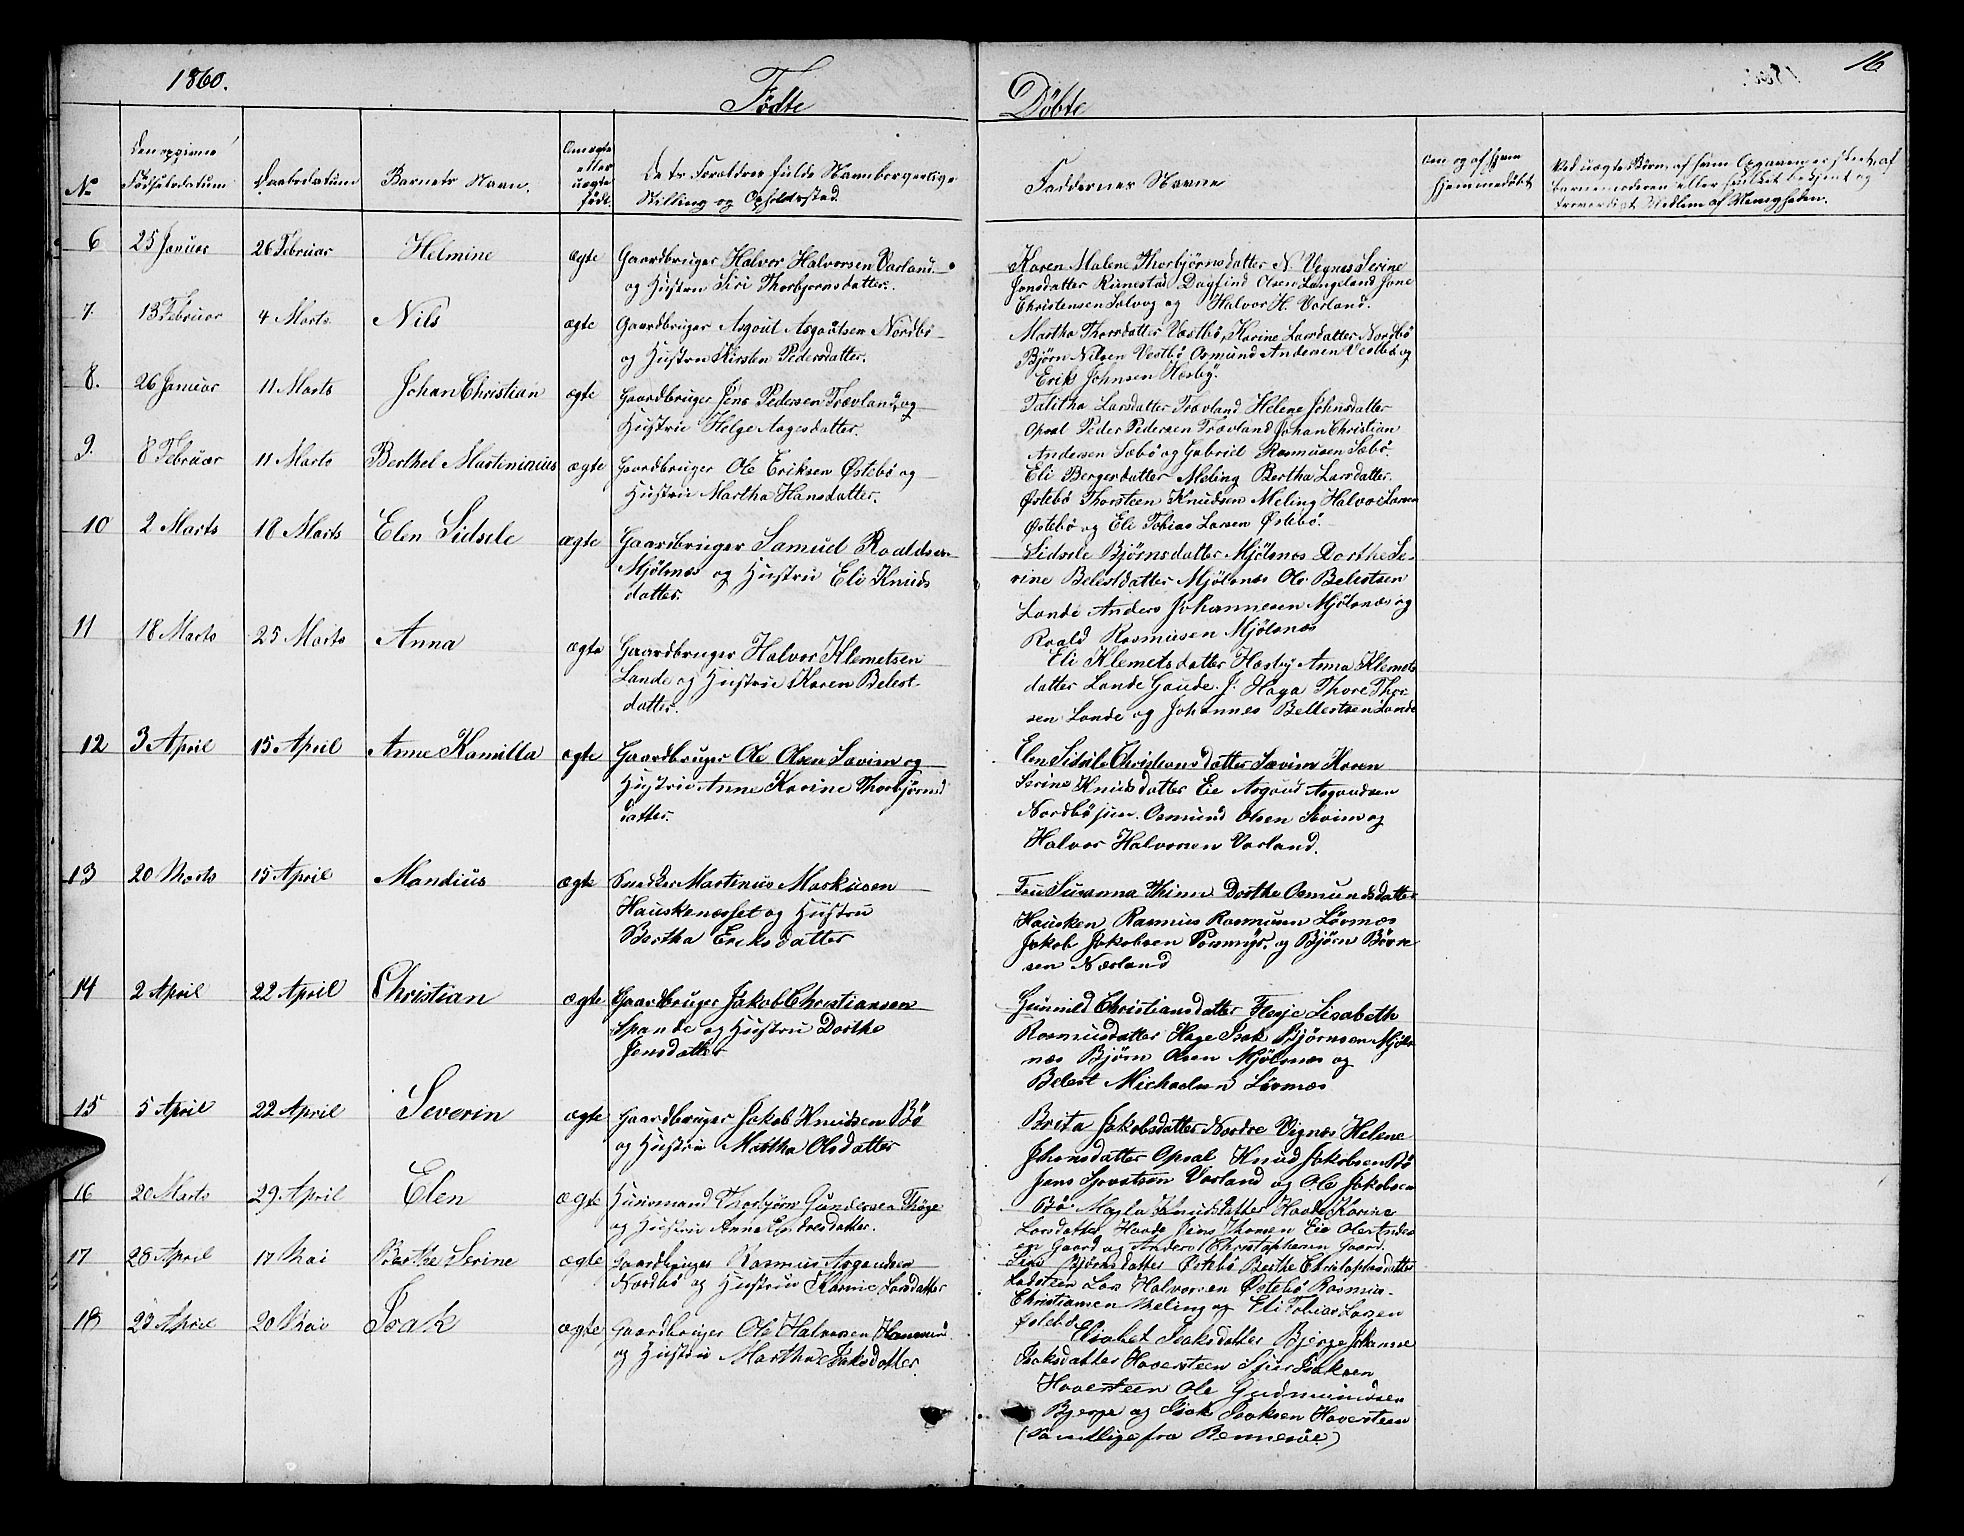 1860.
Fødte
Døbte
16
No
Den opgivne Fødselsdatum
Daabsdatum
Barnets Navn.
Om ægte eller uægte født.
Dets Forældres fulde Navne borgerlige Stilling og Opholdssted.
Faddernes Navne
Om og af hvem hjemmedøbt
Ved uægte Børn, af hvem Opgaven er skeet, af barnemoderen eller hvilket bekjent og troværdigt Medlem af Menigheden.
6 25 Januar 26 Februar Helmine ægte Gaardbruger Halvor Halvorsen Varland
og Hustru Siri Thorbjørnsdatter.
Karen Malene Thorbjørnsdatter N. Vignes Serine
Jonsdatter Rennestad Dagfind Olsen Langeland Jone
Christensen Salvog og Halvor H. Varland.
7. 13 Februar 4 Marts Nils ægte Gaardbruger Asgout Asgoutsen Nordbø
og Hustru Kirsten Pedersdatter.
Martha Thorsdatter Vestbø, Karine Larsdatter Nordbø
Bjørn Nilsen Vestbø Osmund Andersen Vestbø og
Erik Johnsen Hæsby.
8. 26 Januar 11 Marts Johan Christian ægte Gaardbruger Jens Pedersen Trævland og
Hustru Helge Aagesdatter.
Talitha Larsdatter Trævland Helene Johnsdatter
Opsal Peder Pedersen Trævland Johan Christian
Andersen Sæbø og Gabriel Rasmusen Sæbø.
9. 8 Februar 11 Marts Berthel Martininius ægte Gaardbruger Ole Eriksen Østebø og
Hustru Martha Hansdatter.
Eli Bergersdatter Meling Bertha Larsdatter
Østebø Thorsteen Knudsen Meling Halvor Larsen
Østebø og Eli Tobias Larsen Østebø.
10 2 Marts 18 Marts Elen Sidsele ægte Gaardbruger Samuel Roaldsen
Mjølsnæs og Hustru Eli Knuds
datter.
Sidsele Bjørnsdatter Mjølsnæs Dorthe Se-
rine Belestdatter Mjølsnæs Ole Belestsen
Lande Anders Johannesen Mjølsnæs og
Roald Rasmusen Mjølsnæs
11 18 Marts 25 Marts Anna ægte Gaardbruger Halvor Klemetsen
Lande og Hustru Karen Belest-
datter.
Eli Klemetsdatter Hæsby Anna Klemets
datter Lande Gaude J. Haga Thore Thor
sen Lande og Johannes Bellestsen Lande
12 3 April 15 April Anne Kamilla ægte Gaardbruger Ole Olsen Sævim og
Hustru Anne Karine Thorbjørns
datter.
Elen Sidsele Christiansdatter Sævim Karen
Serine Knudsdatter Eie Asgoud Asgoudsen
Nordbø jun. Osmund Olsen Sævim og
Halvor Halvorsen Varland.
13 20 Marts 15 April Mandius ægte Snedker Martinus Markusen
Hauskenæsset og Hustru
Bertha Eriksdatter
Fru Susanna Thinn Dorthe Osmundsdatter
Hausken Rasmus Rasmusen Løvnæs
Jakob Jakobsen og Bjørn Bøvn
sen Nærland
14 2 April 22 April Christian ægte Gaardbruger Jakob Christiansen
Spande og Hustru Dorthe
Jensdatter
Gunnild Christiansdatter Flesje Lisabeth
Rasmusdatter Hage Isak Bjørnsen Mjøls
næs Bjørn Olsen Mjølsnæs og
Belest Michaelsen Løvnæs
15 5 April 22 April Severin ægte Gaardbruger Jakob Knudsen Bø
og Hustru Martha Olsdatter
Brita Jakobsdatter Nordre Vignes Helene
Jhonsdatter Opsal Knud Jakobsen Bø
Jens Sjovatsen Varland og Ole Jakobsen
Bø.
16 20 Marts 29 April Elen ægte Husmand Thorbjørn Gundersen Thøge
og Hustru Anne Endresdatter.
Magla Knudsdatter Haade Karine
Larsdatter Haade Jens Thomsen Eie Ole Ander
sen Gaard og Anders Christophersen Gaard.
17 28 April 17 Mai Berthe Serine ægte Gaardbruger Rasmus Asgoudsen
Nordbø og Hustru Karine Larsdatter
Siri Bjørnsdatter Østebø Berthe Christophersdatter
Ladsteen Lars Halvorsen Østebø Rasmus
Christiansen Meling og Eli Tobias Larsen
Østebø
18 23 April 20 Mai Isak ægte Gaardbruger Ole Halvorsen
og Hustru Martha Isaksdatter.
Elisabet Isaksdatter Bjerge Johanne
Isaksdatter Haversteen Sjur Isaksen
Haversteen Ole Gudmundsen
Bjerge og Isak Isaksen Haversteen
(Samtlige fra Rennesøe)